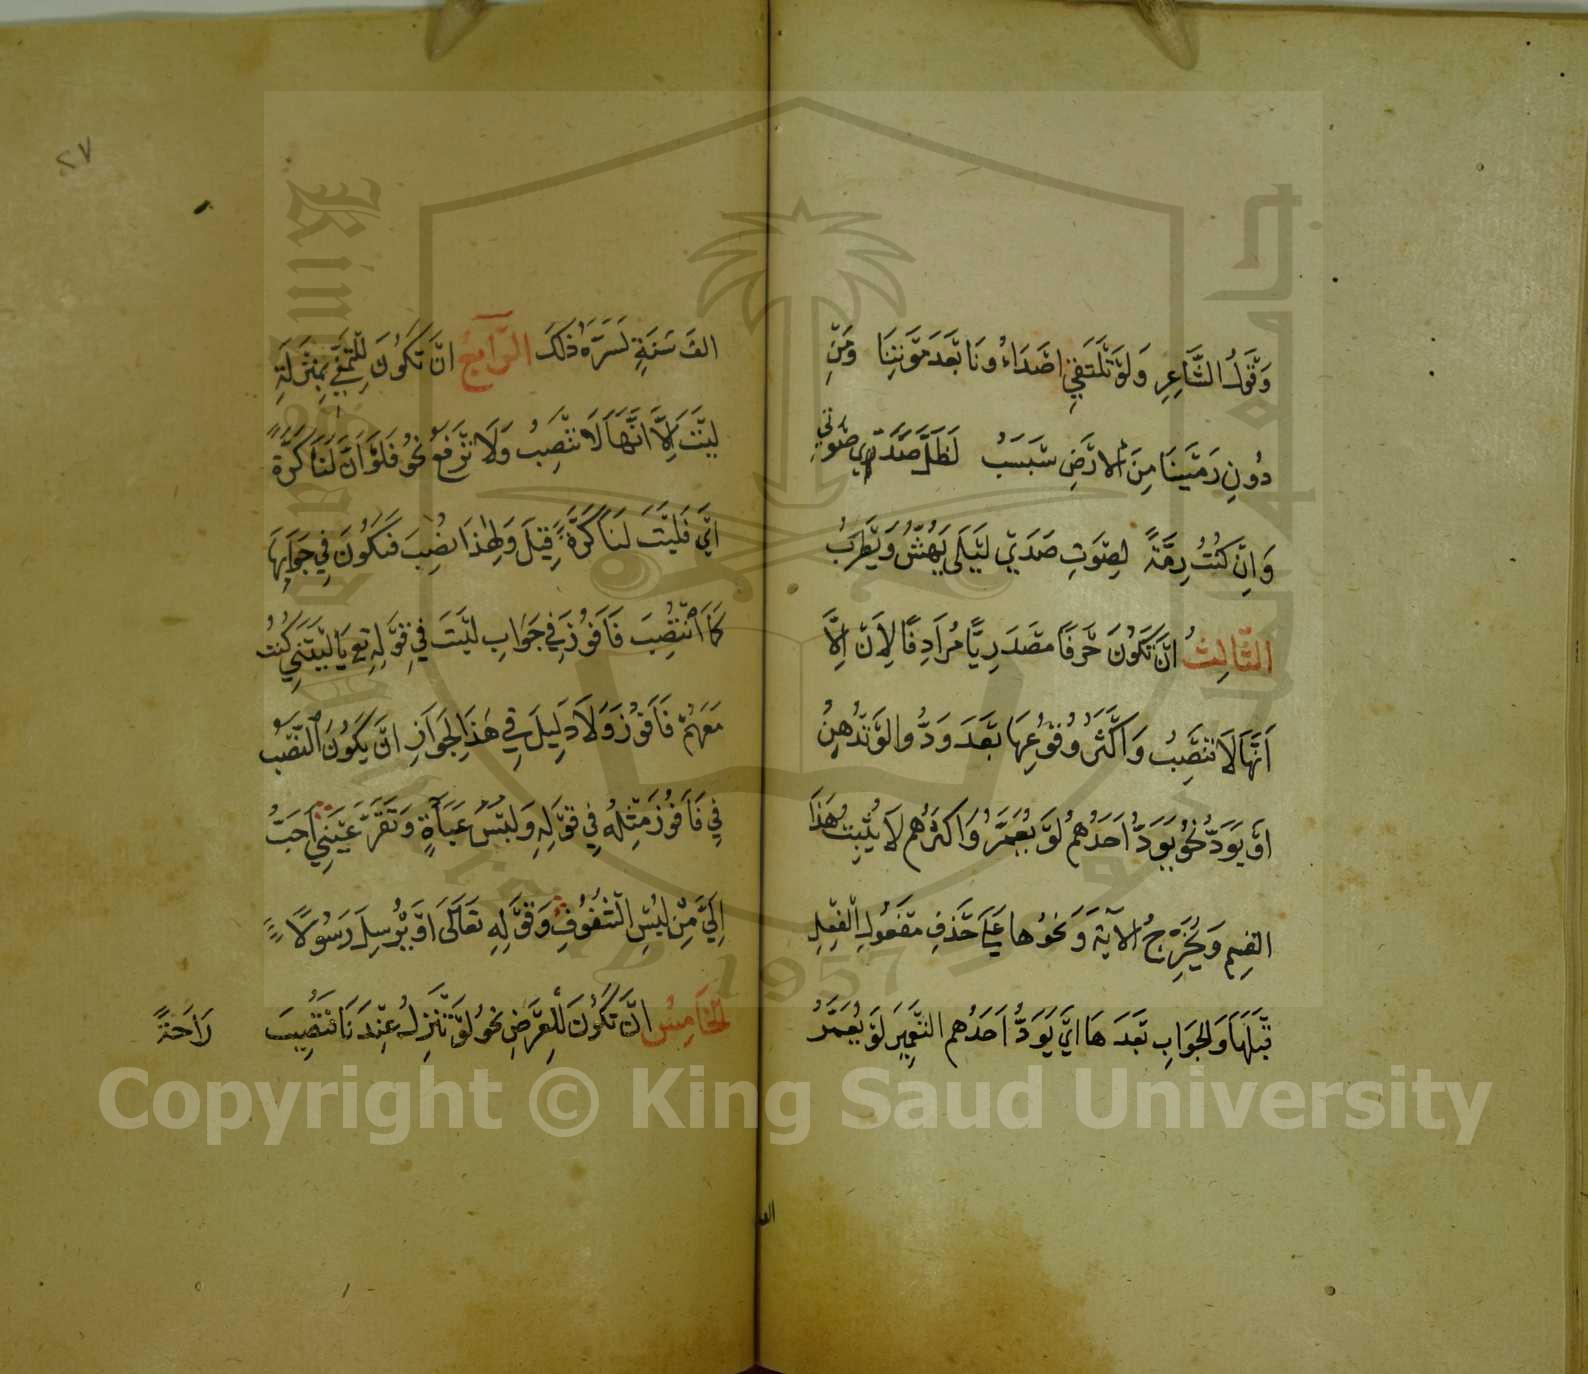 وَقَوْلُ الشَّاعِرِ وَلَوْ تَلْتَقِي اصْدَاءُ ونَا بَعْدَ مَوْتِنَا وَمِنْ
دُونِ رَمْسَيْنَا مِنَ الارْضِ سَبْسَبُ لَظَلَّ صَدَى صَوْتِي
وَاِنْ كُنْتُ رِمَّةً لِصَوْتِ صَدَى لَيْلَى يَهُشُّ وَيَطْرَبُ
الثَّالِثُ انْ تَكُونَ حَرْفًا مَصْدَرِيًّا مُرَادِفًا لِاَنْ اِلَّا
اَنَّهَا لَا تَنْصِبُ وَاَكْثَرُ وُقُوعِهَا بَعْدَ وَدُّوا لَوْ تُدْهِنُ
اَوْ يَوَدُّ نَحْوُ يَوَدُّ اَحَدُهُمْ لَوْ يُعَمَّرُ وَاَكْثَرُهُم لَا يُثْبِتُ هَذَا
القِسْمَ وَيُخَرِّجُ الآيَةَ وَنَحْوُها عَلَى حَذْفِ مَفْعُولِ الْفِعْلِ
قَبْلَهَا وَالجَوَابِ بَعْدَهَا ايْ يَوَدُّ اَحَدُهُم التَّعْمِيرَ لَوْ يُعَمَّرُ
الف
٢٧
الفَ سَنَةٍ لَسَرَّهُ ذَلَكَ الرَّابِعُ انْ تَكُونَ لِلتَّمَنِّي بِمَنْزِلَةِ
لَيْتَ اِلَّا انَّهَا لَا تَنْصِبُ وَلَا تَرْفَعُ نَحْوُ فَلَوْ اَنَّ لَنَا كَرَّةً
اَيْ فَلَيْتَ لَنَا كَرَّةً قِيلَ وَلِهٰذَا نُصِبَ فَنَكُونَ فِي جَوَابِهَا
كَمَا انْتَصَبَ فَاَفُوزَ فِي جَوَابِ لَيْتَ فِي قَوْلِهِ تع يَا لَيْتَنِي كُنْتُ
مَعَهُمْ فَاَفُوزَ وَلَا دَلِيلَ فِي هَذَا لِجَوَازِ انْ يَكُونَ النَّصْبُ
فِي فَاَفُوزَ مِثْلَهُ فِي قَوْلِهِ وَلُبْسُ عَبَاءَةٍ وَتَقَرَّ عَيْنِي اَحَبُّ
اِلَيَّ مِنْ لُبْسِ الشُّفُوفِ وَقَوْلِهِ تَعَالَى اوْ يُرْسِلَ رَسُولًا
الخَامِسُ انْ تَكُونَ لِلْعَرْضِ نَحْوُ لَوْ تَنْزِلُ عِنْدَنَا فَتُصِيبَ رَاحَةً
King Saud University
جامعة الملك سعود
1957
Copyright © King Saud University